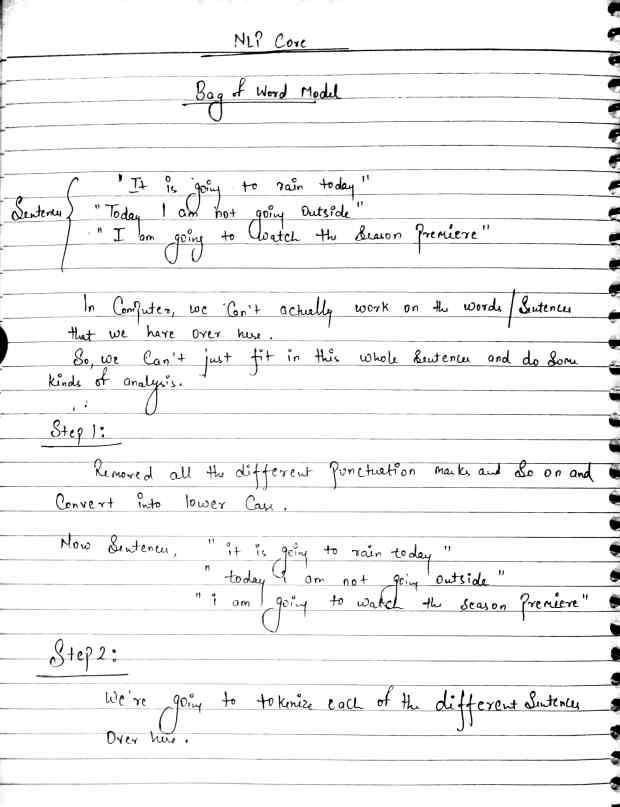 NLP Core
Bag of Word Model
"It is going to rain today"
Sentences "Today I am not going Outside"
"I am going to watch the Season Premiere"
In Computer, we Can't actually work on the words/Sentences
that we have over here.
So, we Can't just fit in this whole Sentences and do Some
kinds of analysis.
Step 1:
Removed all the different Punctuation marks and So on and
Convert into lower Case.
Now Sentences, "it is going to rain today"
"today i am not going outside"
"i am going to watch the season premiere"
Step 2:
We're going to tokenize each of the different Sentences
Over here.